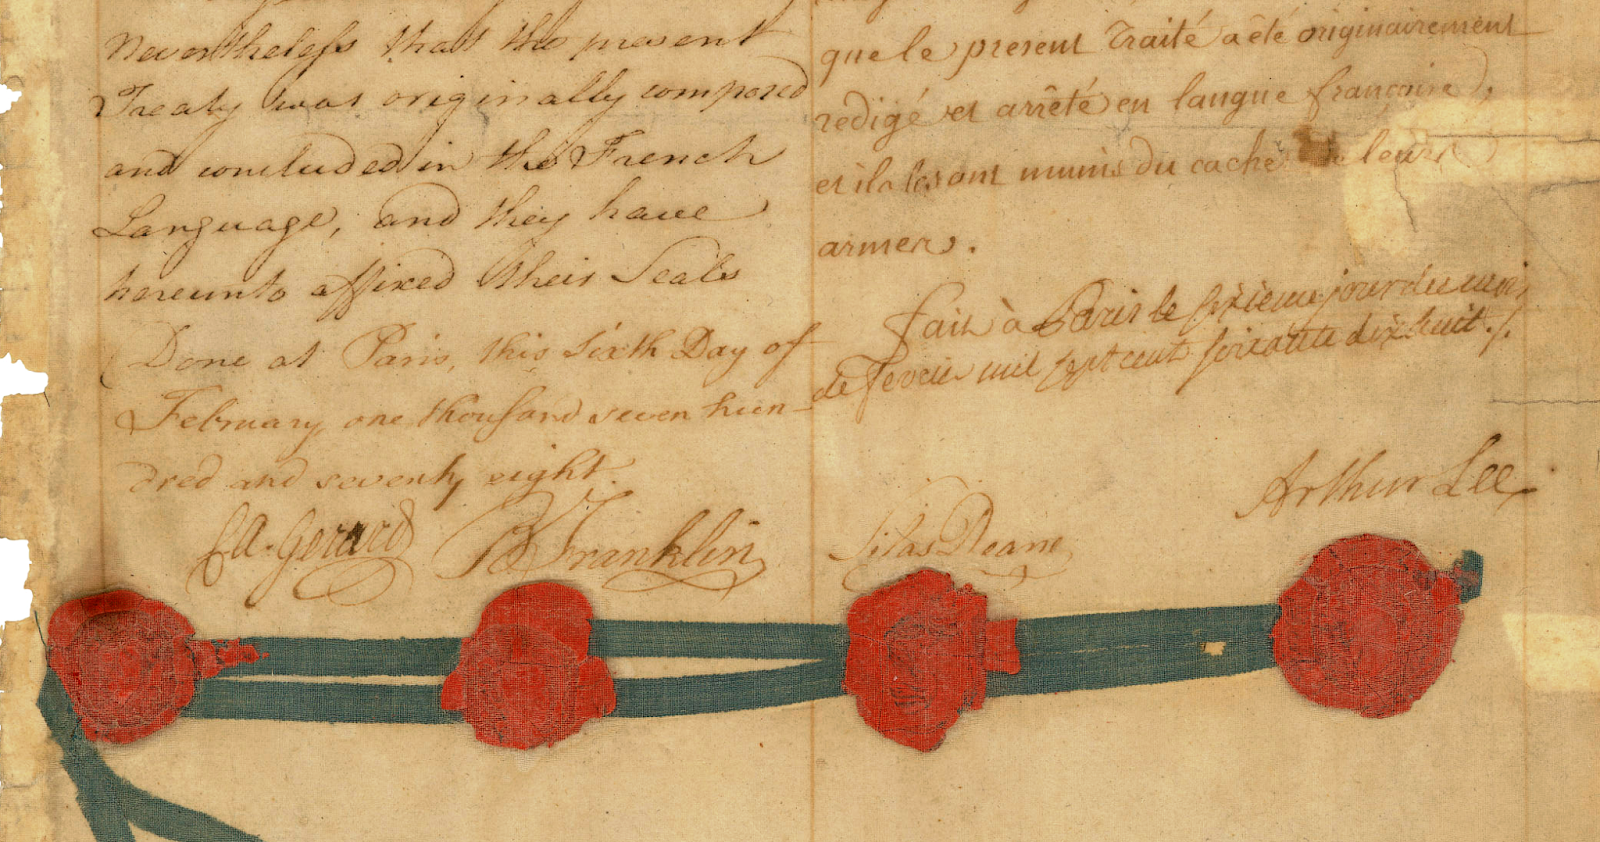 Nevertheless that the present
Treaty was originally composed
and concluded in the French
Language, and they have
hereunto affixed their Seals
Done at Paris, this sixth Day of
February, one thousand seven hun-
dred and seventy eight.
que le present Traité a été originairement
redigé et arrêté en langue françoise,
et ils les ont munis du cachet de leurs
armes.
fait à Paris le sixieme jour du mois
de fevrier mil sept cent soixante dix huit ./.
CA. Gerard
B Franklin
Silas Deane
Arthur Lee